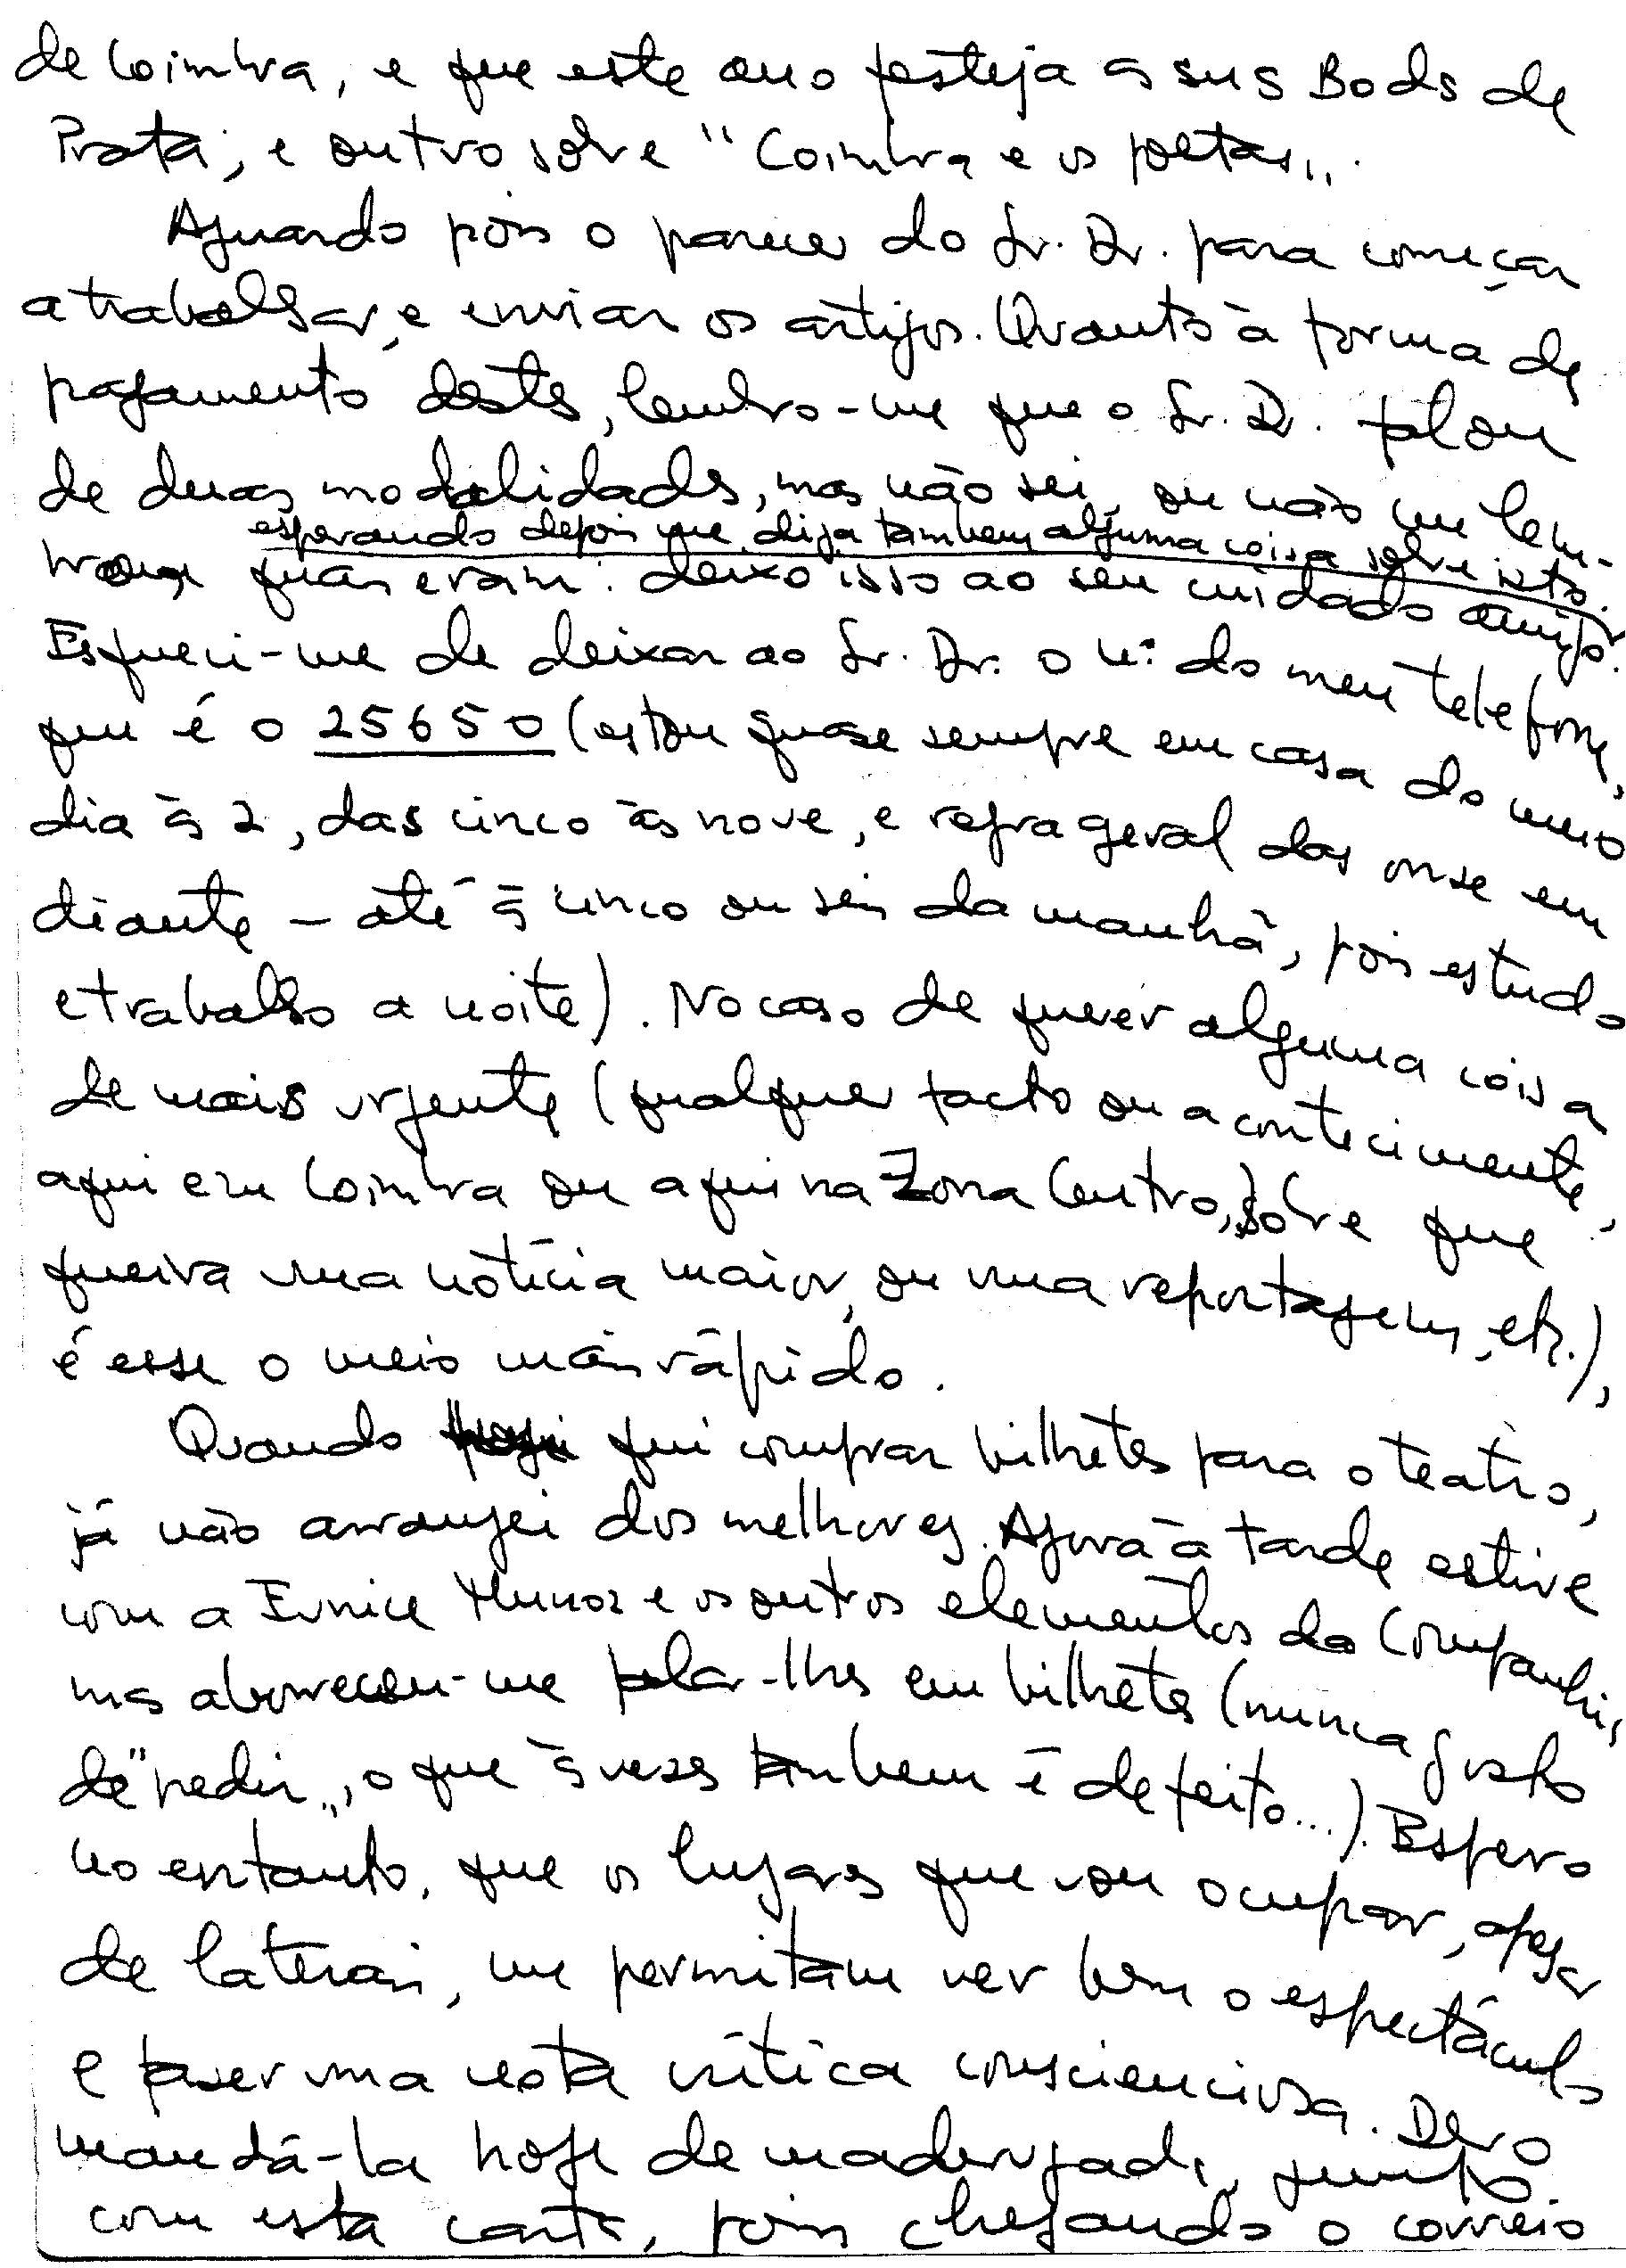 de Coimbra, e que este ano festeja as suas Bodas de
Prata; e outro sôbre "Coimbra e os poetas".
Aguardo pois o parecer do Sr. Dr. para começar
a trabalhar, e enviar os artigos. Quanto à forma de
pagamento destes, lembro-me que o Sr. Dr. falou
de duas modalidades, mas não sei, ou não me lem-
esperando depois que diga tambem alguma coisa sobre isto.
quais eram: deixo isso ao seu cuidado amigo.
Esqueci-me de deixar ao Sr. Dr. o nº do meu telefone,
que é o 25650 (estou quase sempre em casa do meio
dia às 2, das cinco às nove, e regra geral das onse em
diante — até às cinco ou seis da manhã, pois estudo
e trabalho a noite). No caso de querer alguma coisa
de mais urgente (qualquer facto ou acontecimento,
aqui em Coimbra ou aqui na Zona Centro, sôbre que
queira uma notícia maior, ou uma reportagem, etc.),
é esse o meio mais rápido.
Quando fui comprar bilhetes para o teatro,
já não arranjei dos melhores. Agora à tarde estive
com a Eunice Munoz e os outros elementos da Companhia,
mas aborreceu-me falar-lhes em bilhetes (nunca gosto
de "pedir", o que às vezes tambem é defeito...). Espero
no entanto, que os lugares que vou ocupar, apesar
de laterais, me permitam ver bem o espectáculo
e fazer uma nota crítica conscienciosa. Devo
mandá-la hoje de madrugada, junto
com esta carta, pois chegando o correio